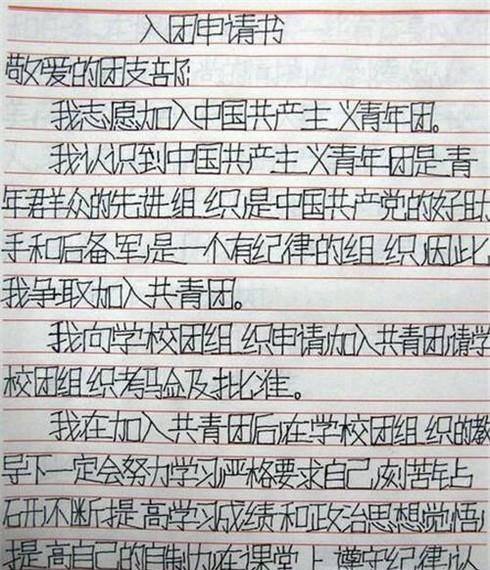 入团申请书
敬爱的团支部:
我志愿加入中国共产主义青年团。
我认识到中国共产主义青年团是青
年群众的先进组织,是中国共产党的好助
手和后备军,是一个有纪律的组织,因此,
我争取加入共青团。
我向学校团组织申请,加入共青团,请学
校团组织考验及批准。
我在加入共青团后,在学校团组织的教
导下一定会努力学习,严格要求自己,刻苦钻
研,不断提高学习成绩和政治思想觉悟,
提高自己的自制力,在课堂上遵守纪律,认